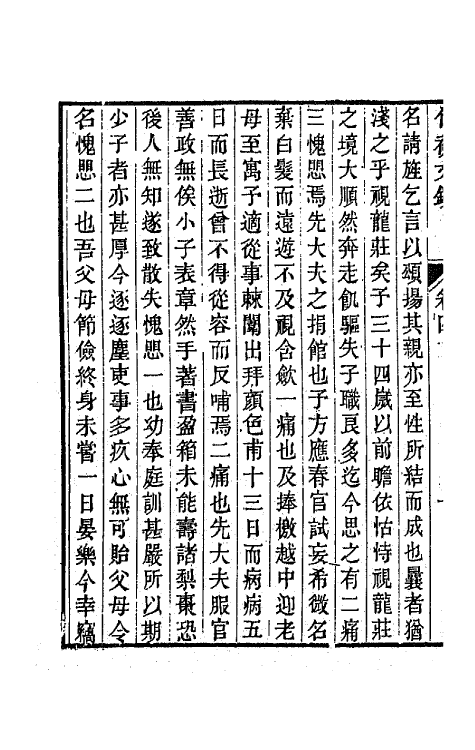 名請旌乞言以頌揚其親亦至性所結而成也曩者猶
淺之乎視龍莊矣予三十四歲以前瞻依怙恃視龍莊
之境大順然奔走飢驅失子職良多迄今思之有二痛
三愧焉先大夫之捐館也予方應春官試妄希微名
棄白髮而遠遊不及視含歛一痛也及捧檄越中迎老
母至寓予適從事棘闈出拜顔色甫十三日而病病五
日而長逝曾不得從容而反哺焉二痛也先大夫服官
善政無俟小子表章然手著書盈箱未能壽諸梨棗恐
後人無知遂致散失愧一也幼奉庭訓甚嚴所以期
少子者亦甚厚今逐逐塵吏事多疚心無可貽父母令
名愧二也吾父母節儉終身未嘗一日晏樂今幸竊